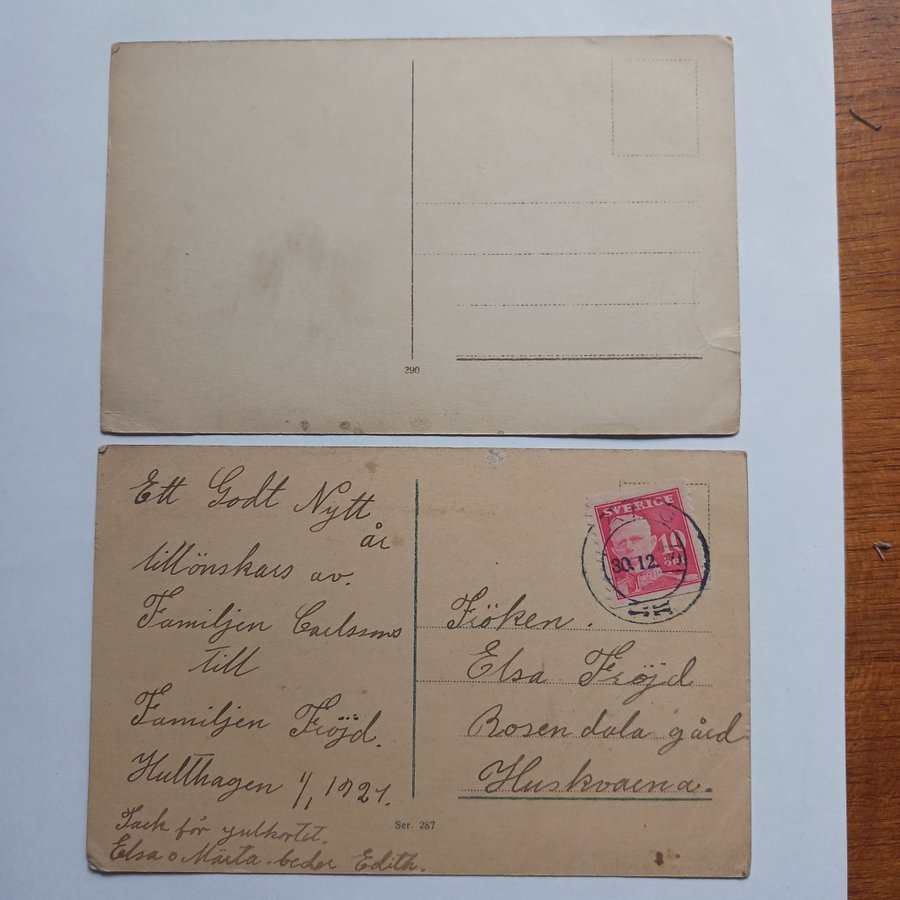 290
Ett Godt Nytt
år
tillönskas av.
Familjen Carlssons
till
Familjen Fröjd.
Hulthagen 1/1 1921.
Tack för julkortet.
Elsa o Märta beder Edith.
Ser. 287
SVERIGE
10
30.12
Fröken.
Elsa Fröjd
Rosendala gård
Huskvarna.